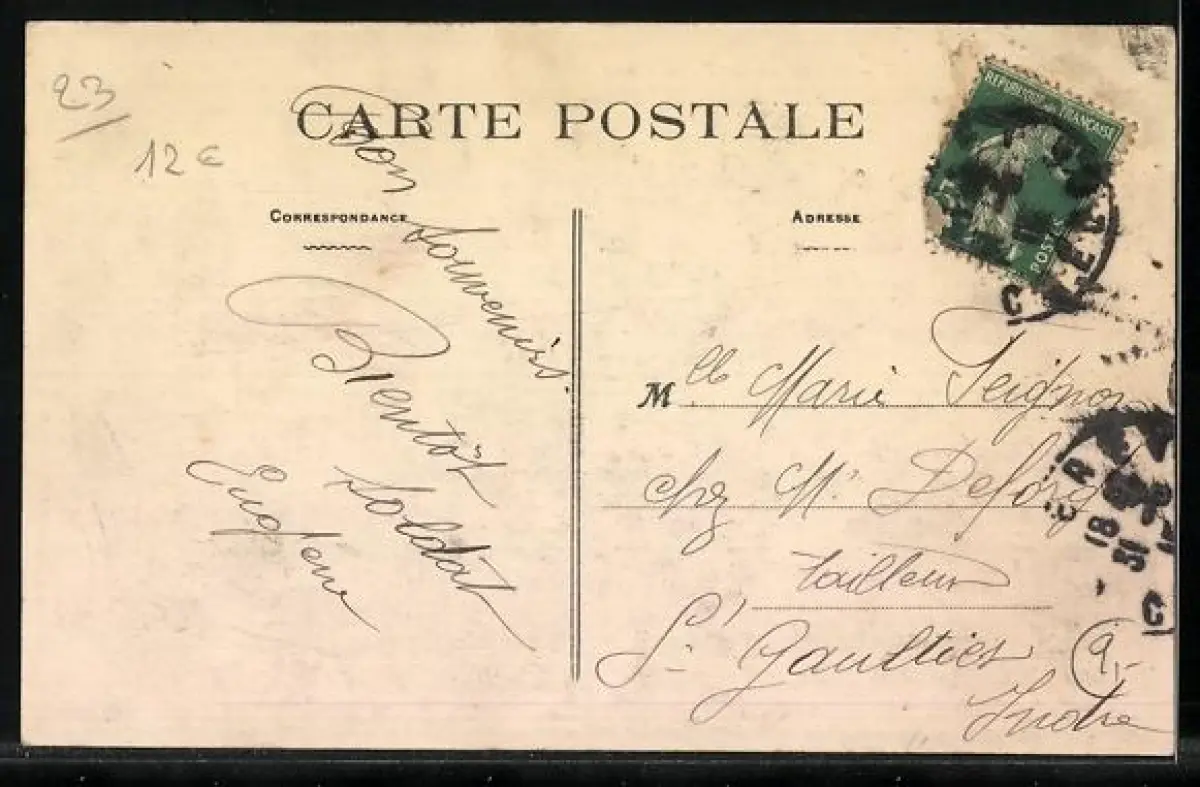 23
12 €
CARTE POSTALE
CORRESPONDANCE
ADRESSE
REPUBLIQUE FRANÇAISE
POSTES
Bon
Souvenirs.
Bientôt
soldat
Eugène
Mlle Marie
chez Mr
tailleur
St Gaultier
Indre
9,-